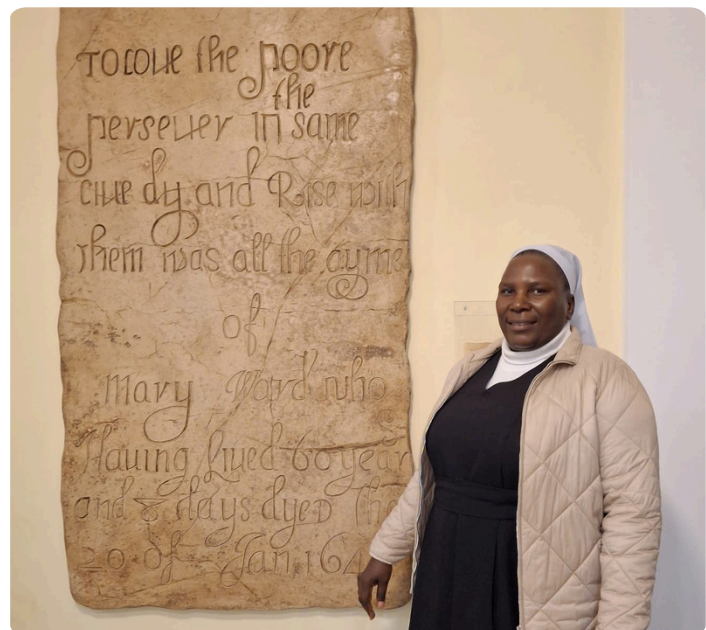 TO LOUE the poore
the
perseuer in same
liue dy and Rise with
them was all the ayme
of
Mary Ward who
Hauing Liued 60 year
and 8 days dyed the
20 of Jan 164